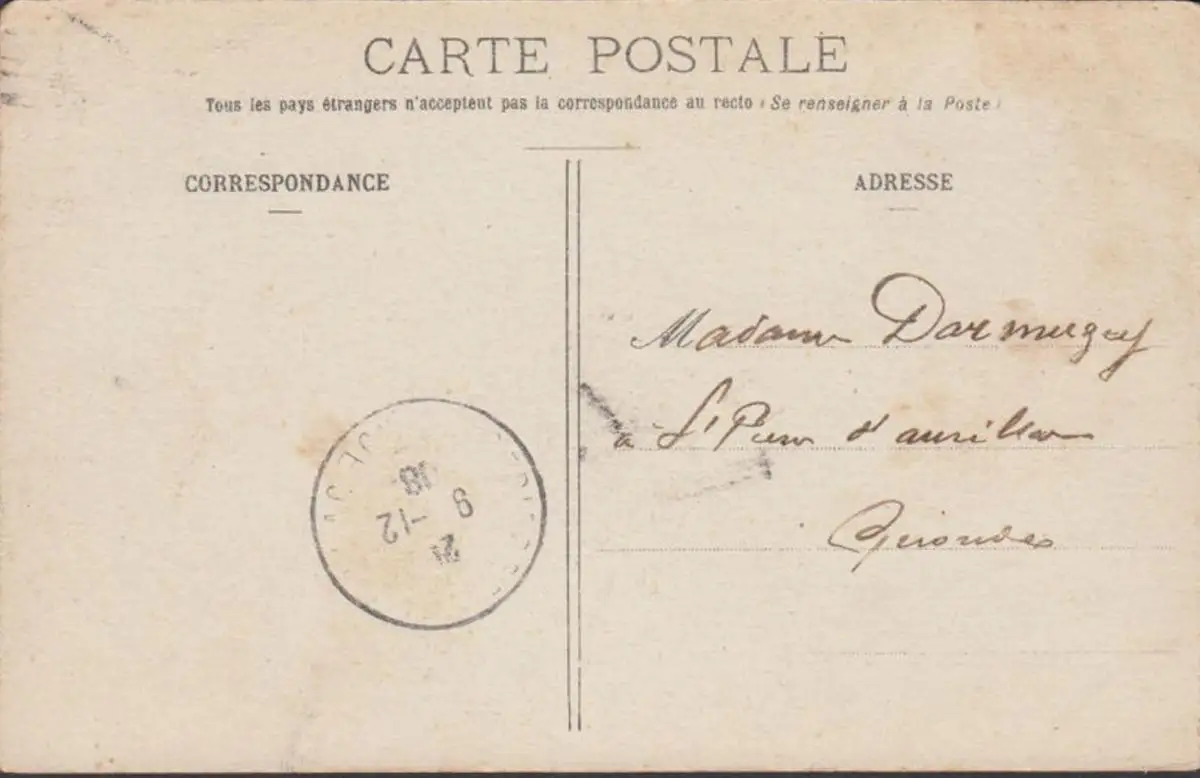 CARTE POSTALE
Tous les pays étrangers n'acceptent pas la correspondance au recto (Se renseigner à la Poste)
CORRESPONDANCE
ADRESSE
Madame
à St Pierre d'aurillac
Gironde
9 -12
08